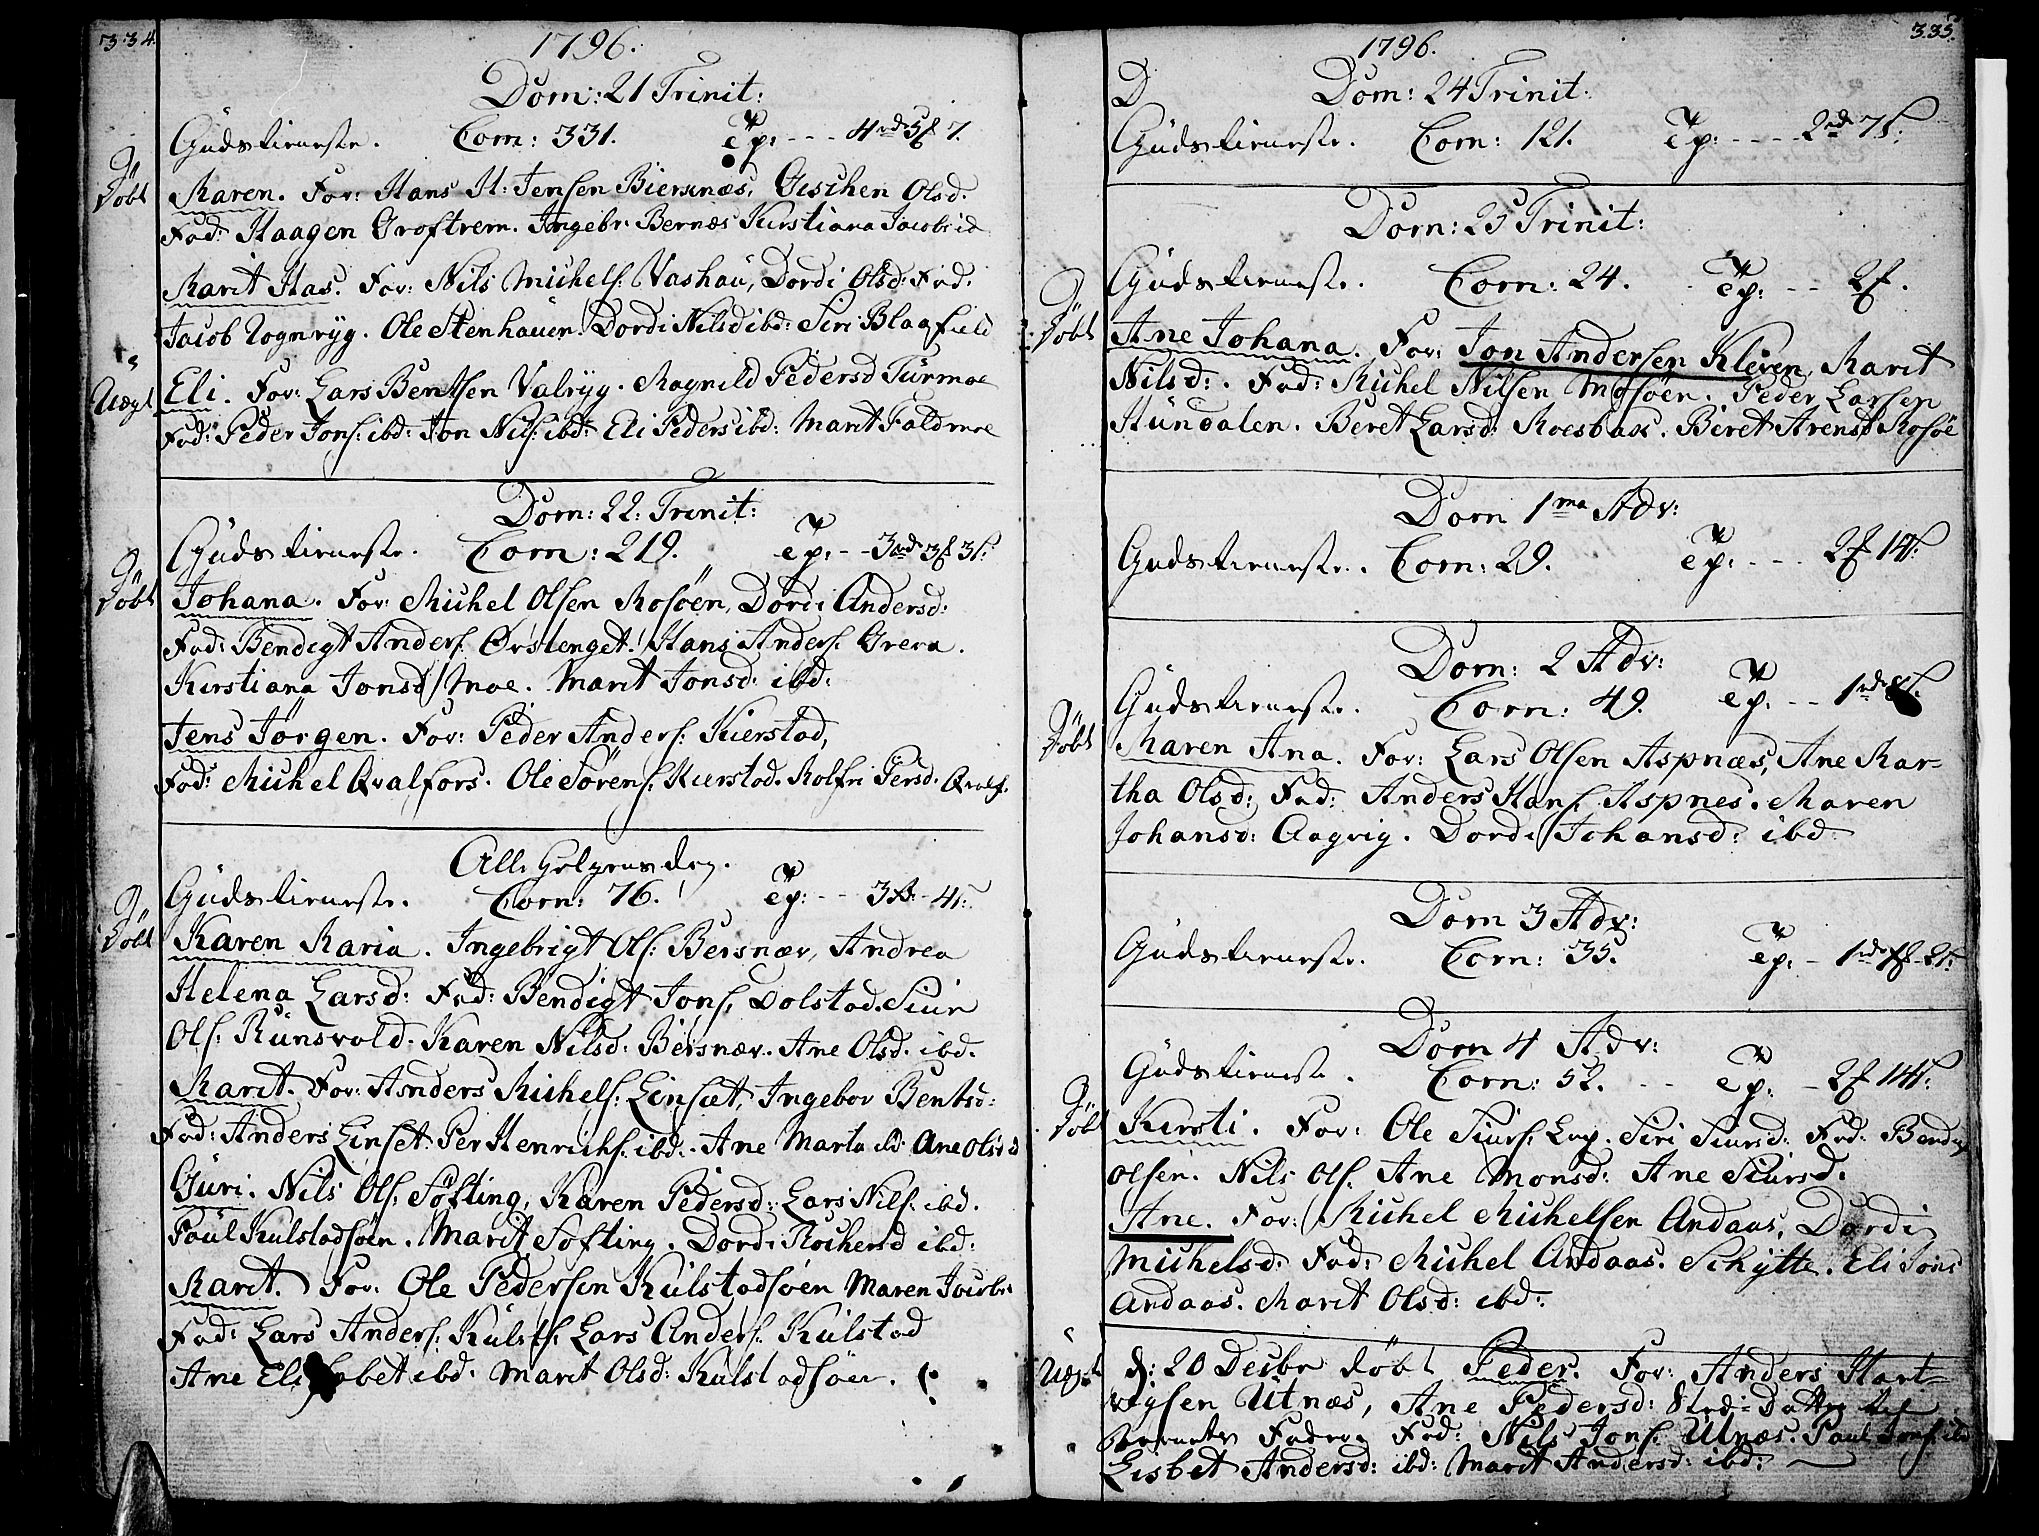 334.
1796.
Dom: 21 Trinit:
Gudstieneste. Com: 331. Tp: --- 4 rd 5 7.
Døbt
Maren. For: Hans H: Jensen Biersnæs, Gischen Olsd.
Fad: Haagen Groftrem. Ingebr. Bersnæs Kirstiana Jacobs id
Marit Has. For: Nils Michels: Vashau, Dordi Olsd: Fad.
Jacob Rognryg. Ole Stenhauen. Dordi Nilsd ibd: Siri Blaafield
Uægt
Eli. For: Lars Bentsen Valryg. Magnild Pedersd Turmoe
Fad: Peder Jons: ibd: Jon Nils: ibd: Eli Peders ibd: Marit Faldmoe
Dom: 22: Trinit:
Gudstieneste. Com: 219. Tp: -- 3 rd 3 3 s:
Døbt
Johana. For: Michel Olsen Mosøen, Dordi Andersd:
Fad: Bendigt Anders: Ørstenget. Hans Anders: Grera.
Kirstiana Jonsd Moe. Marit Jonsd: ibd:
Jens Jørgen. For: Peder Anders: Kierstad,
Fad: Michel Qvalfors. Ole Sørens: Kierstad. Rolfri Persd. Qvalf.
Alle Helgens dag.
Gudstieneste. Com: 76. Tp: -- 3 4 s:
Døbt
Karen Maria. Ingebrigt Ols: Bersnær, Andrea
Helena Larsd: Fad: Bendigt Jons, Dolstad. Siur
Ols: Runsvold. Karen Nilsd: Bersnær. Ane Olsd. ibd.
Marit. For: Anders Michels: Einset, Ingebor Bentsd:
Fad: Anders Einset. Per Henrichs: ibd:. Ane Marta ibd: Ane Olsd
Guri. Nils Ols: Søfting, Karen Pedersd: Lars Nils: ibd.
Paul Kulstadsøen. Marit Søfting. Dordi Rochersd ibd:
Marit. For: Ole Pedersen Kulstadsøen Maren Jacobs
Fad: Lars Anders: Kulst: Lars Anders: Kulstad
Ane Elisabet ibd. Marit Olsd: Kulstadsøen.
335.
1796.
D Dom: 24 Trinit:
Gudstieneste. Com: 121. Tp: --- 2 rd 7 s:
Dom: 25 Trinit:
Gudstieneste. Com: 24. Tp: -- 2
Døbt
Ane Johana. For: Jon Andersen Kleven, Marit
Nilsd:. Fad: Michel Nilsen Mosøen. Peder Larsen
Hundalen. Beret Larsd: Moesbak. Beret Arensd Mosøe
Dom 1ma Adv:
Gudstieneste. Com: 29. Tp: --- 2 14 s:
Dom: 2 Adv:
Gudstieneste. Com: 49. Tp: -- 1 rd
Døbt
Maren Ana. For: Lars Olsen Aspnæs, Ane Mar-
tha Olsd: Fad: Anders Hans: Aspnes. Maren
Johansd: Aagrig. Dordi Johansd: ibd
Dom 3 Adv:
Gudstieneste. Com: 35. Tp: - 1 rd 2 s:
Dom 4 Adv:
Gudstieneste. Com: 52. -- Tp: - 2 14 s:
Døbt
Kirsti. For: Ole Siurs: Lap. Siri Siursd: Fad: Bendigt
Olsen. Nils Ols: Ane Monsd: Ane Siursd.
Ane. For: Michel Michelsen Andaas, Dordi
Michelsd: Fad: Michel Andaas. Schytte. Eli Jons
Andaas. Marit Olsd: ibd:
Uægt
d: 20 Desbr døbt Peder. For: Anders Hart-
vigsen Utnæs, Ane Pedersd: Datter af
Barnets Fader. Fad: Nils Jons: Utnæs. Paul Jons: ibd
Lisbet Andersd: ibd: Marit Andersd: ibd: